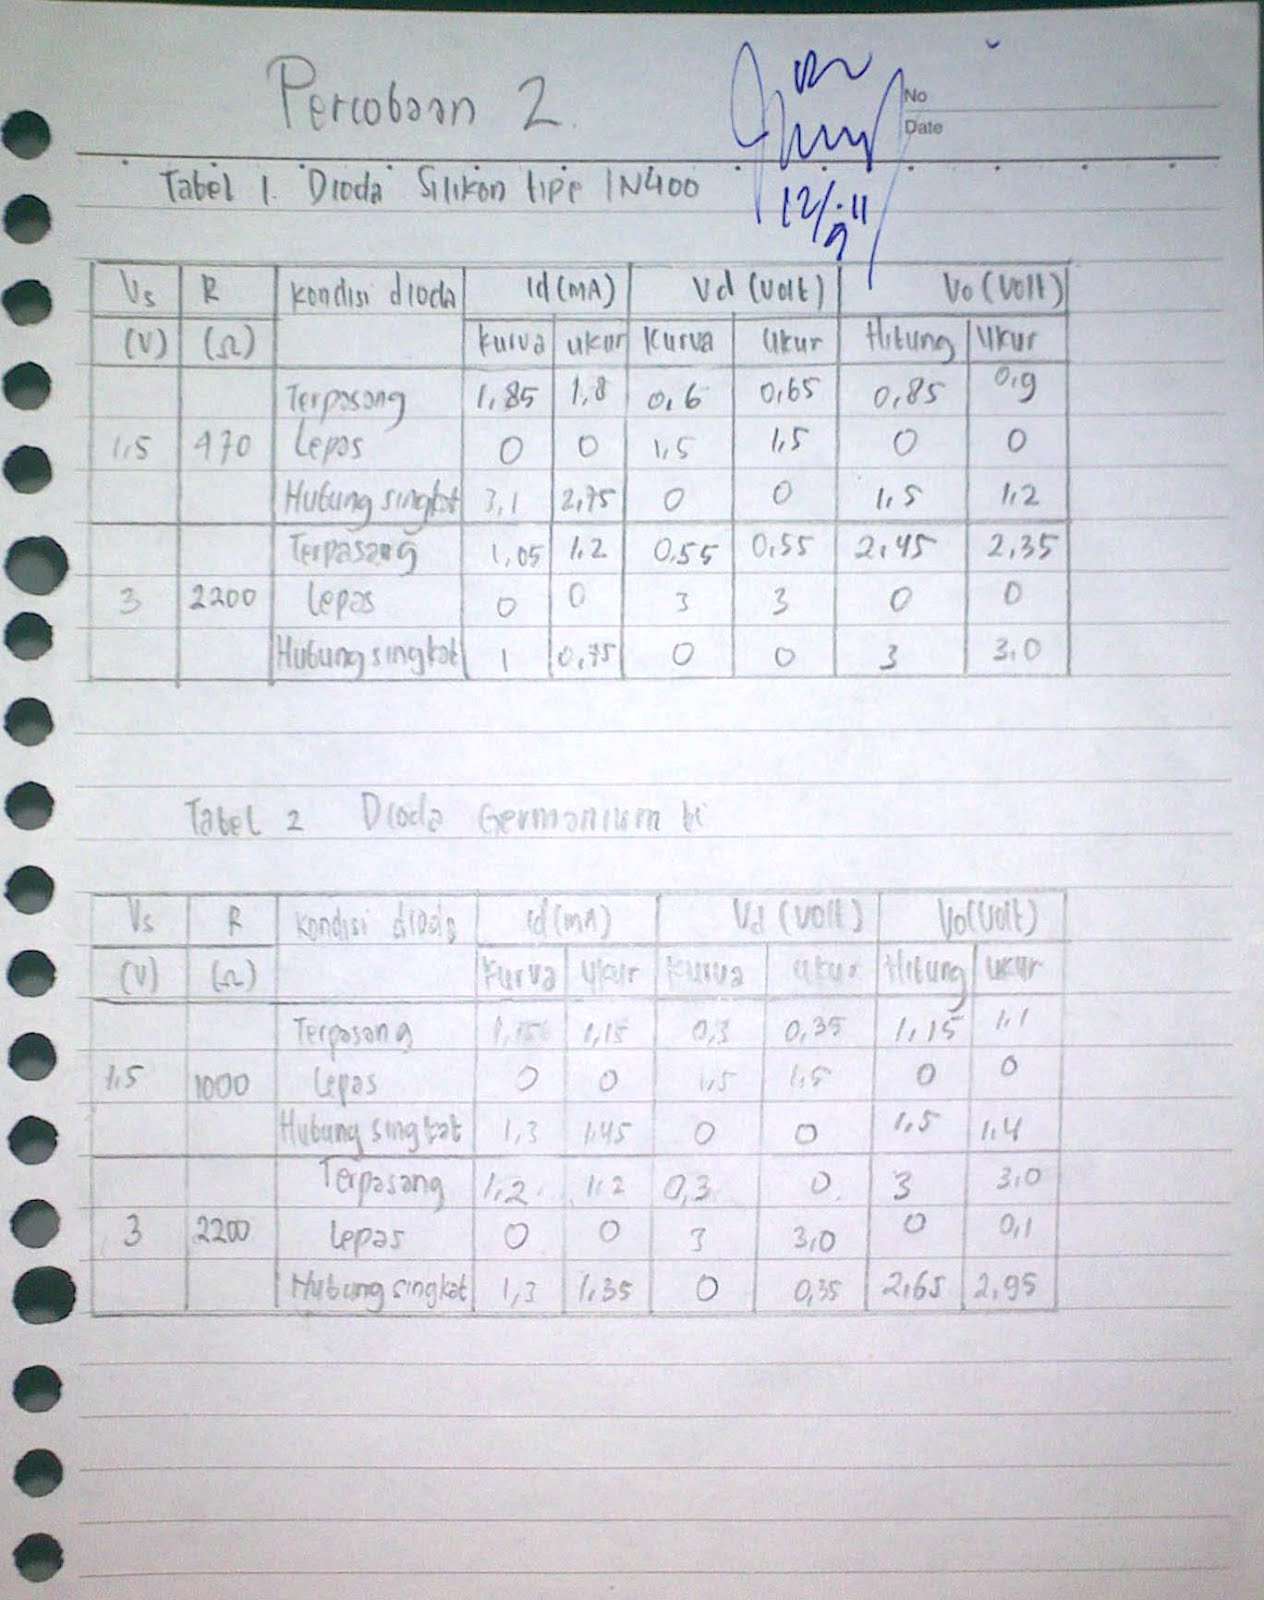 Percobaan 2.
No
Date
12/9.11
Tabel 1. Dioda Silikon tipe 1N400
Vs R Kondisi dioda Id (mA) Vd (Volt) Vo (Volt)
(V) (Ω) kurva ukur Kurva Ukur Hitung Ukur
Terpasang 1,85 1,8 0,6 0,65 0,85 0,9
1,5 470 Lepas 0 0 1,5 1,5 0 0
Hubung singkat 3,1 2,75 0 0 1,5 1,2
Terpasang 1,05 1,2 0,55 0,55 2,45 2,35
3 2200 Lepas 0 0 3 3 0 0
Hubung singkat 1 0,75 0 0 3 3,0
Tabel 2 Dioda Germanium ti
Vs R Kondisi dioda Id (mA) Vd (Volt) Vo (Volt)
(V) (Ω) Kurva Ukur Kurva Ukur Hitung Ukur
Terpasang 1,15 0,3 0,35 1,15 1,1
1,5 1000 Lepas 0 0 1,5 1,5 0 0
Hubung singkat 1,3 1,45 0 0 1,5 1,4
Terpasang 1,2 1,2 0,3 0 3 3,0
3 2200 Lepas 0 0 3 3,0 0 0,1
Hubung singkat 1,3 1,35 0 0,35 2,65 2,95